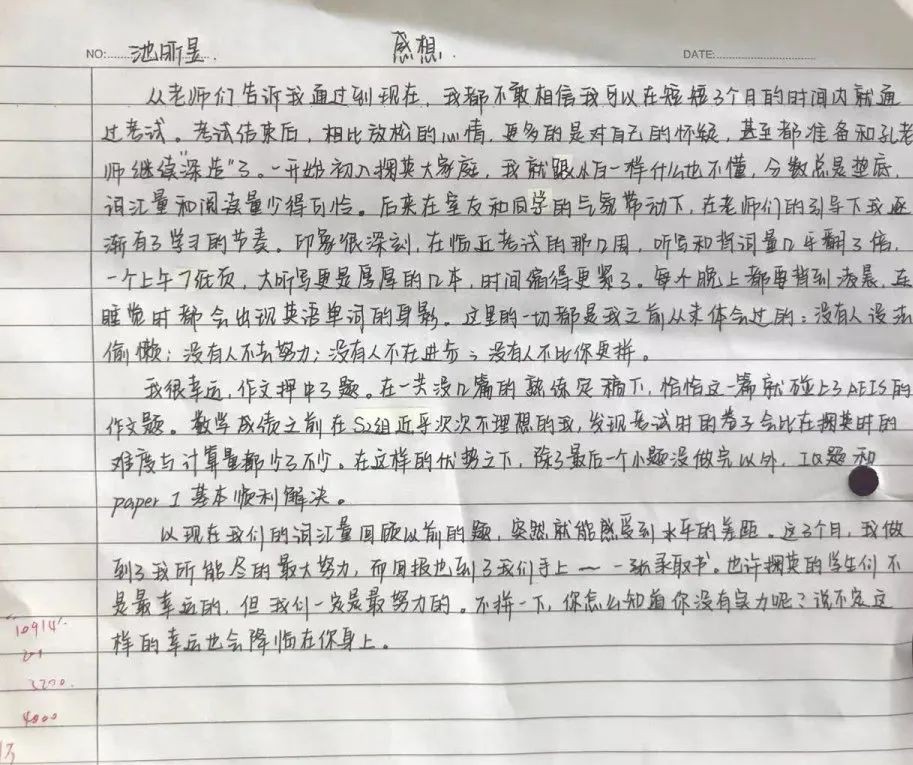 NO: 池昕昱. 感想. DATE:
从老师们告诉我通过到现在，我都不敢相信我可以在短短3个月的时间内就通
过考试。考试结束后，相比放松的心情，更多的是对自己的怀疑，甚至都准备和孔老
师继续"深造"了。一开始初入拥英大家庭，我就跟小白一样什么也不懂，分数总是垫底，
词汇量和阅读量少得可怜。后来在室友和同学的气氛带动下，在老师们的引导下我逐
渐有了学习的节奏。印象很深刻，在临近考试的那几周，听写和背词量几乎翻了倍，
一个上午7张页，大听写更是厚厚的几本，时间缩得更紧了。每个晚上都要背到凌晨，连
睡觉时都会出现英语单词的身影。这里的一切都是我之前从未体会过的：没有人设法
偷懒；没有人不去努力；没有人不在进步；没有人不比你更拼。
我很幸运，作文押中了题。在一共没几篇的熟练定稿下，恰恰这一篇就碰上了AEIS的
作文题。数学成绩之前在S2组近乎次次不理想的我，发现考试时的卷子会比在拥英时的
难度与计算量都少了不少。在这样的优势之下，除了最后一个小题没做完以外，IQ题和
paper 1 基本顺利解决。
以现在我们的词汇量回顾以前的题，突然就能感受到水平的差距。这3个月，我做
到了我所能尽的最大努力，而回报也到了我们手上——一张录取书。也许拥英的学生们不
是最幸运的，但我们一定是最努力的。不拼一下，你怎么知道你没有实力呢？说不定这
样的幸运也会降临在你身上。
10914
3200.
4000